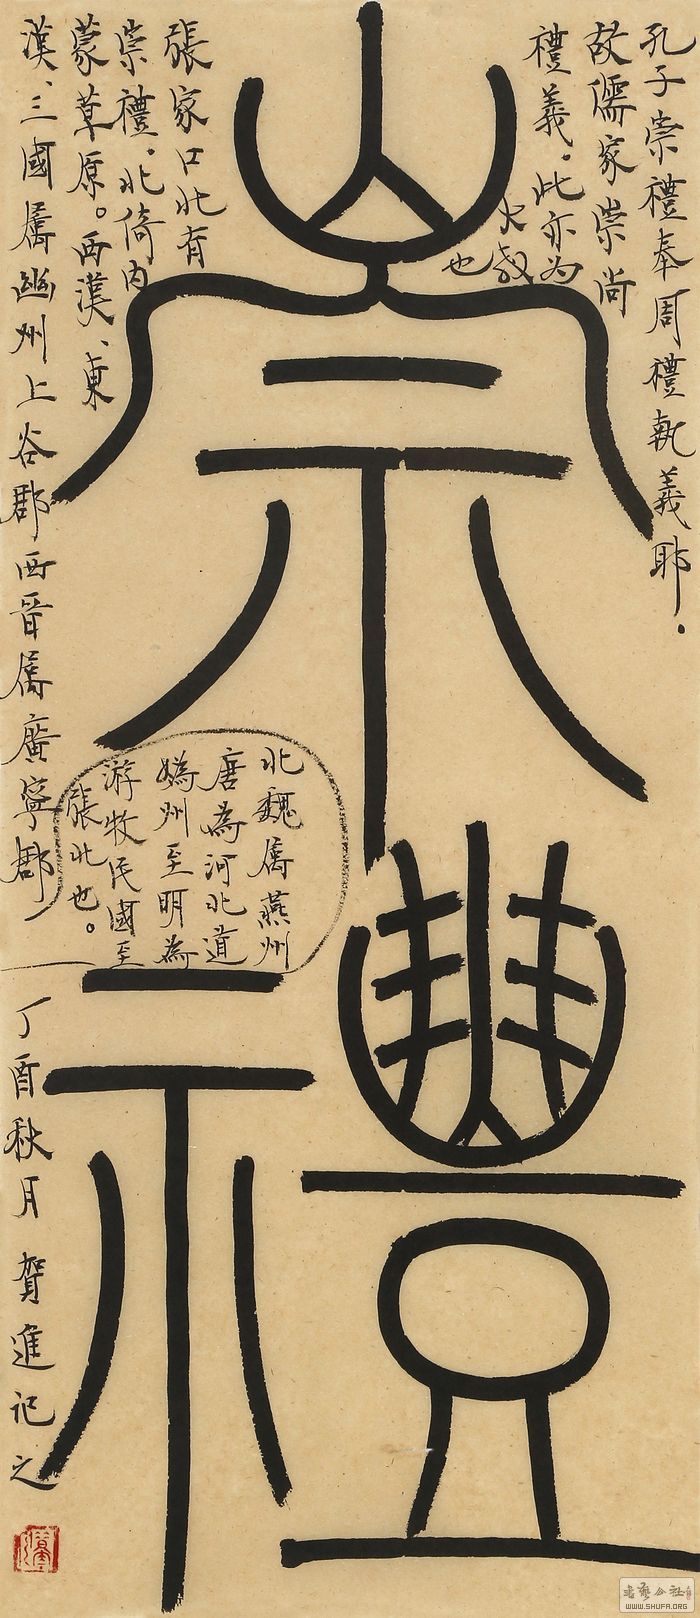 崇禮
孔子崇禮奉周禮執義耶。
故儒家崇尚
禮義。此亦为
大教
也
張家口北有
崇禮。北倚内
蒙草原。西漢、東
漢、三國屬幽州上谷郡西晉屬廣寧郡
北魏屬燕州
唐為河北道
媯州至明為
游牧民國至
張北也。
丁酉秋月 賀進记之
书艺公社
WWW.SHUFA.ORG